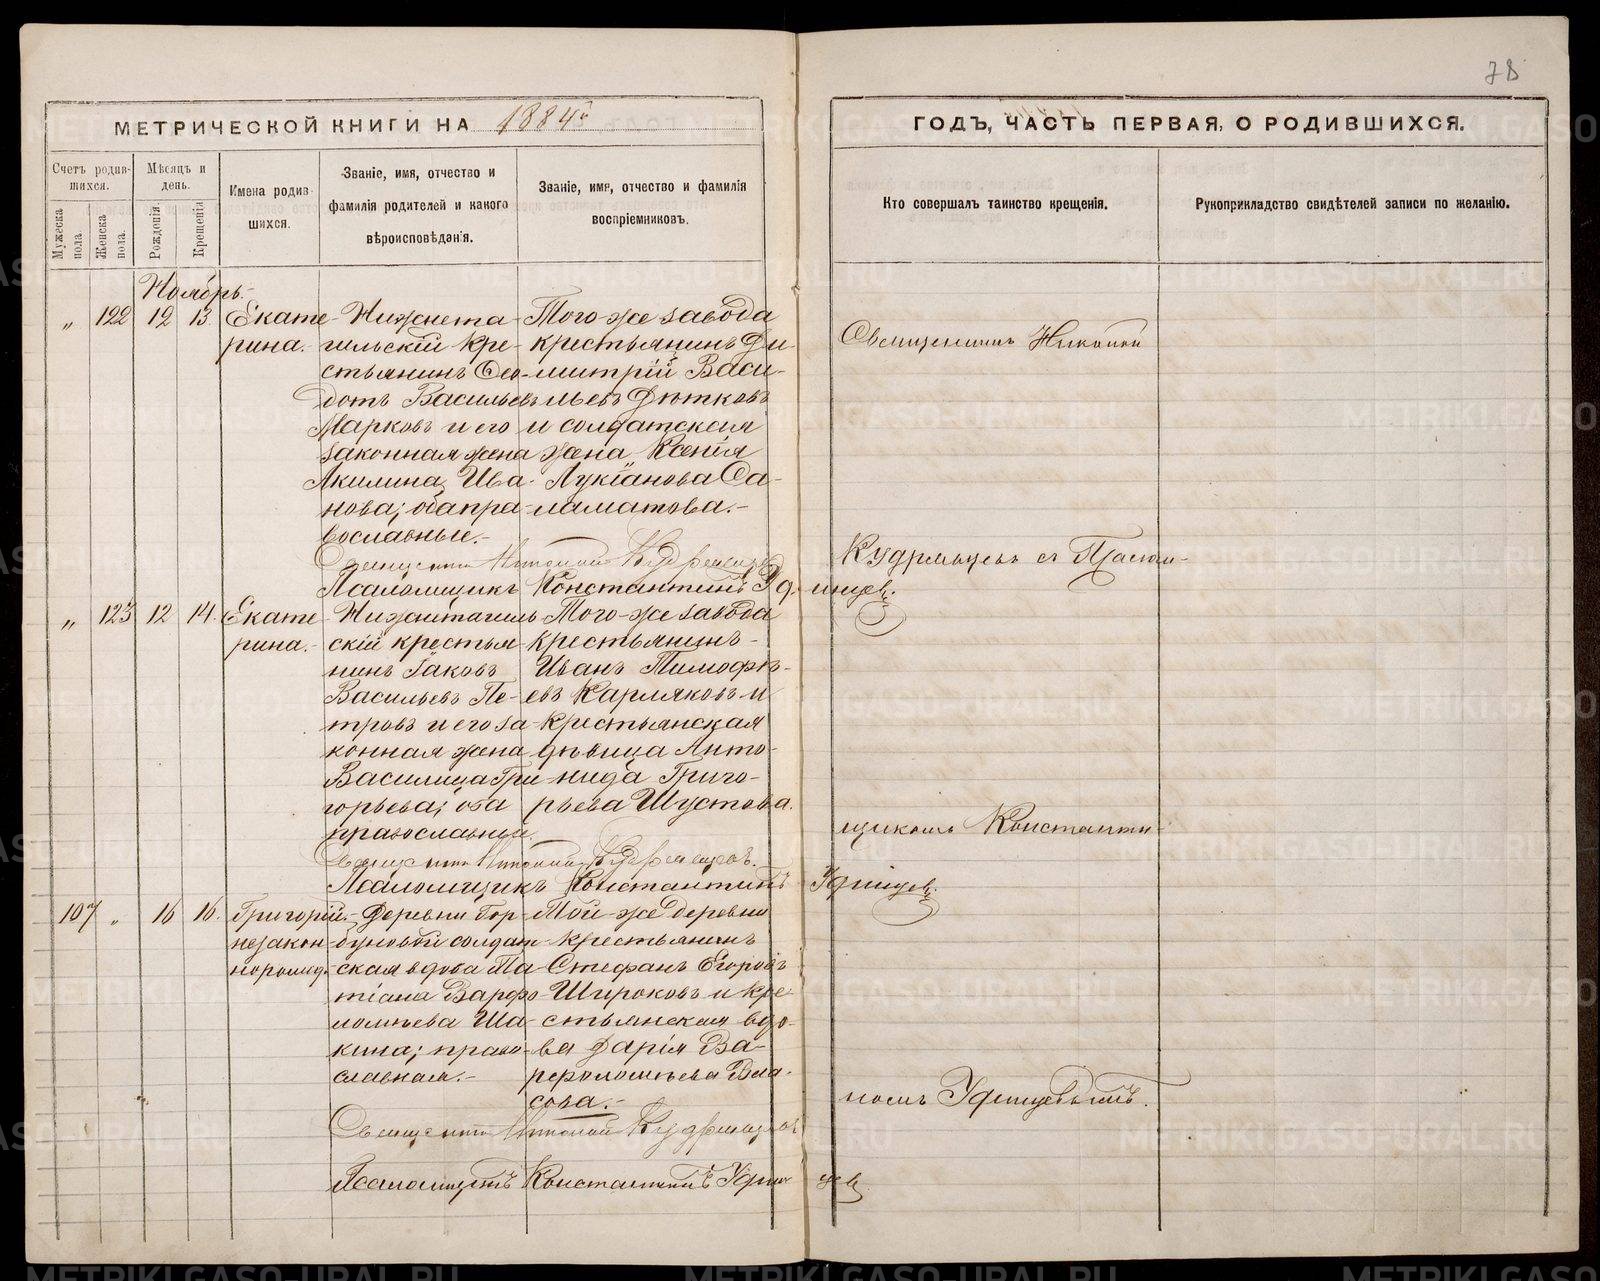 78
МЕТРИЧЕСКОЙ КНИГИ НА 1884й
ГОДЪ, ЧАСТЬ ПЕРВАЯ, О РОДИВШИХСЯ.
Счетъ родив-
шихся.
Мужеска пола.
Женска пола.
Мѣсяцъ и
день.
Рожденія.
Крещенія
Имена родив
шихся.
Званіе, имя, отчество и
фамилія родителей и какого
вѣроисповѣданія.
Званіе, имя, отчество и фамилія
воспріемниковъ.
Кто совершалъ таинство крещенія.
Рукоприкладство свидѣтелей записи по желанію.
Ноябрь.-
„ 122 12 13.
Екате-
рина.-
Нижнета-
гильскій кре-
стьянинъ Ѳео-
дотъ Васильевъ
Марковъ и его
законная жена
Акилина Ива-
нова; оба пра-
вославные.-
Того-же завода
крестьянинъ Ди-
митрій Васи-
льевъ Дютковъ
и солдатская
жена Ксенія
Лукіанова Са-
ламатова.-
Священникъ Николай Кудрявцевъ
Псаломщикъ Константинъ Удинцевъ.
„ 123 12 14.
Екате
рина.-
Нижнетагиль-
скій крестья-
нинъ Іаковъ
Васильевъ Пе-
тровъ и его за-
конная жена
Василиса Гри-
горьева; оба
православныи.
Того-же завода
крестьянинъ-
Иванъ Тимофѣ-
евъ Карляковъ и
крестьянская
дѣвица Анто-
нида Григо-
рьева Шустова.
Священникъ Николай Кудрявцевъ.
Псаломщикъ Константинъ Удинцевъ.
107 „ 16 16.
Григорій.-
незакон-
норожд.
Деревни Гор-
буновой солдат-
ская вдова Та-
тіана Варфо-
ломѣева Ша-
кина; право-
славная.-
Той-же деревни
крестьянинъ
Стефанъ Егоровъ
Широковъ и кре-
стьянская вдо-
ва Дарія Ва-
рфоломѣева Вла-
сова.-
Священникъ Николай Кудрявцевъ
Псаломщикъ Константинъ Удинцевъ
Священникъ Николай
Кудрявцевъ съ Псалом-
щикомъ Константи-
номъ Удинцевымъ.
METRIKI.GASO-URAL.RU